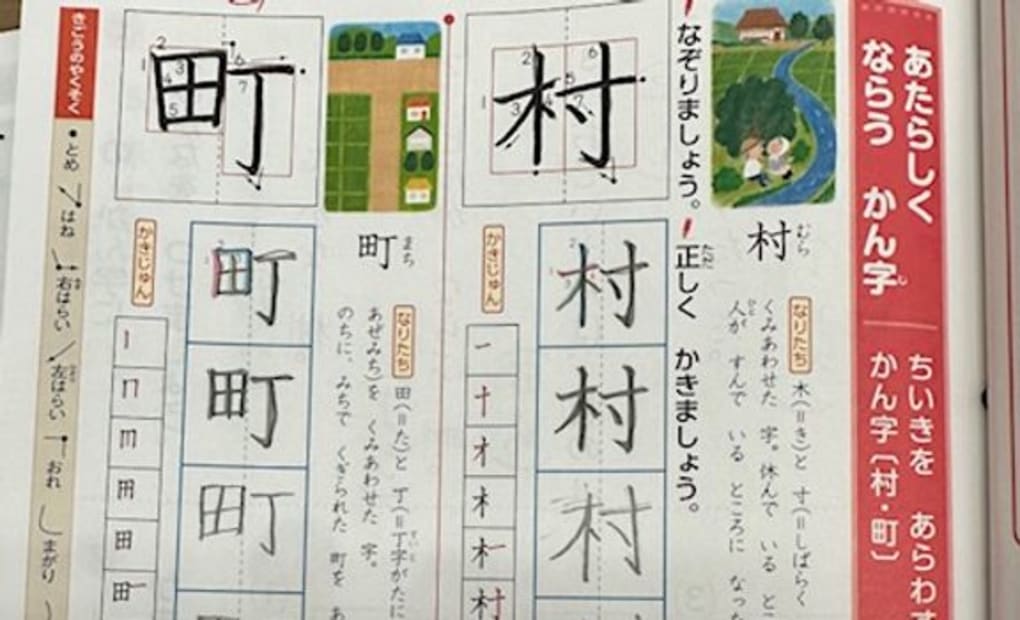 あたらしく
ならう　かん字
じ
ちいきを　あらわす
かん字〔村・町〕
なぞりましょう。
正しく　かきましょう。
ただ
村
むら
なりたち
木(=き)と　寸(=しばらく
くみあわせた　字。休んで　いる　とこ
人が　すんで　いる　ところに　なった
ひと
村
1
2
3
4
5
6
7
かきじゅん
一
十
オ
木
村
村
村
村
町
まち
なりたち
田(=た)と　丁(=丁字がたに
あぜみち)を　くみあわせた　字。
のちに、みちで　くぎられた　町を　あ
町
1
2
3
4
5
6
7
かきじゅん
丨
冂
田
町
町
町
きごうのやくそく
とめ
はね
右はらい
みぎ
左はらい
ひだり
おれ
まがり